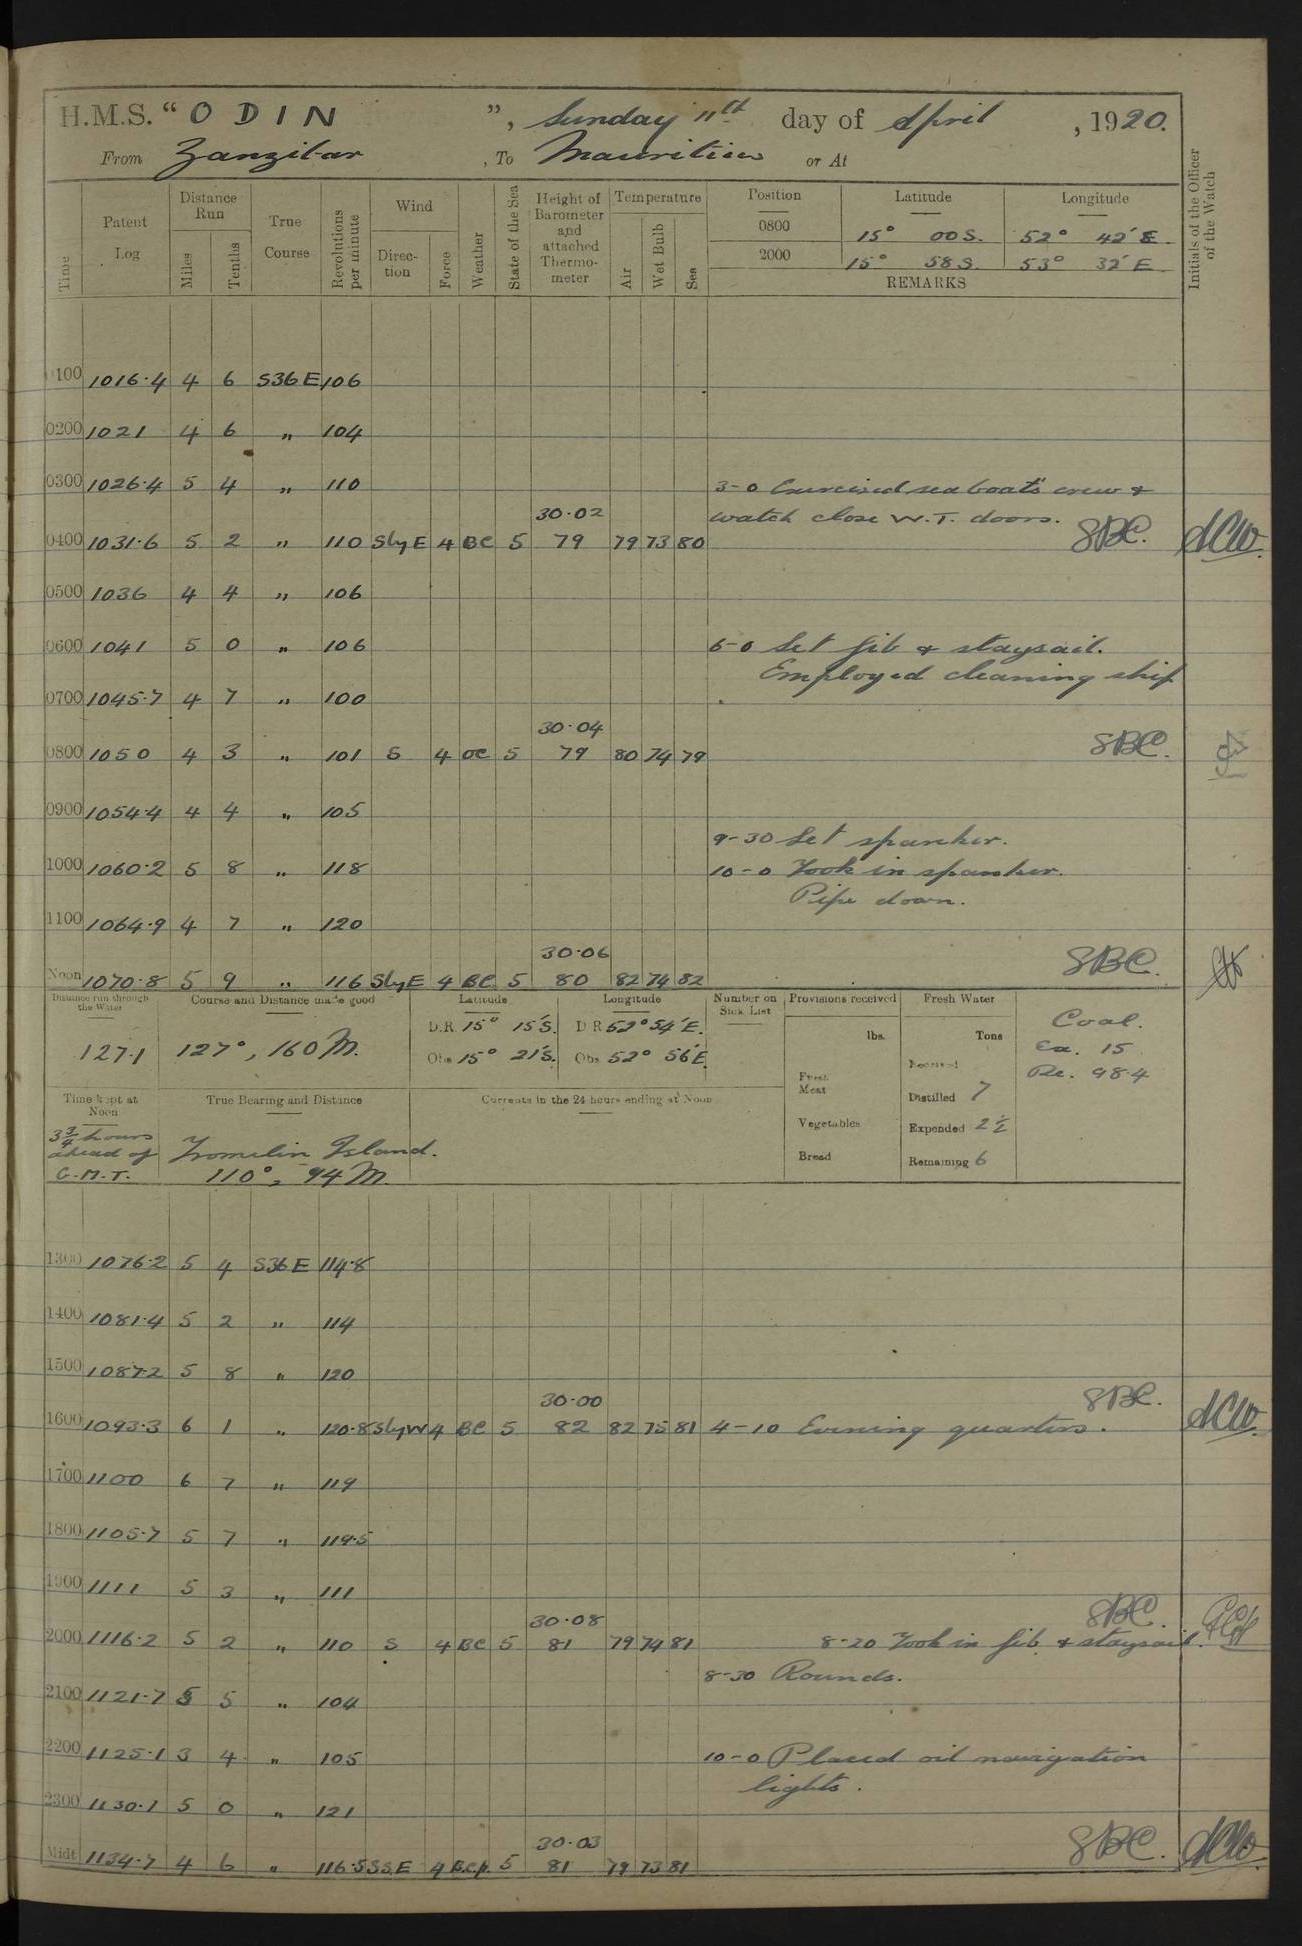 H.M.S. "ODIN", Sunday 11th day of April, 1920.
From Zanzibar, To Mauritius or At
Time Patent Log Distance Run Miles Tenths True Course Revolutions per minute Wind Direction Force Weather State of the Sea Height of Barometer and attached Thermometer Temperature Air Wet Bulb Sea Position Latitude Longitude Initials of the Officer of the Watch
0800 15° 00 S. 52° 42' E
2000 15° 58 S. 53° 32' E
REMARKS
0100 1016.4 4 6 S36E 106
0200 1021 4 6 " 104
0300 1026.4 5 4 " 110 3-0 Exercised sea boat's crew &
30.02 watch close W.T. doors.
0400 1031.6 5 2 " 110 SlyE 4 BC 5 79 79 73 80 SBC. ACW.
0500 1036 4 4 " 106
0600 1041 5 0 " 106 6-0 Set jib & staysail.
Employed cleaning ship
0700 1045.7 4 7 " 100
30.04
0800 1050 4 3 " 101 S 4 OC 5 79 80 74 79 SBC.
0900 1054.4 4 4 " 105
9-30 Set spanker.
1000 1060.2 5 8 " 118 10-0 Took in spanker.
Pipe down.
1100 1064.9 4 7 " 120
30.06
Noon 1070.8 5 9 " 116 SlyE 4 BC 5 80 82 74 82 SBC.
Distance run through the Water Course and Distance made good Latitude Longitude Number on Sick List Provisions received Fresh Water
127.1 127°, 160 M. D.R. 15° 15'S. D R 52° 54'E. lbs. Tons Coal.
Obs 15° 21'S. Obs 52° 56'E. Received Ex. 15
Fresh Meat Distilled 7 Re. 984
Time kept at Noon True Bearing and Distance Currents in the 24 hours ending at Noon
3¾ hours ahead of G.M.T. Tromelin Island. Vegetables Expended 2½
110°, 94 M. Bread Remaining 6
1300 1076.2 5 4 S36E 114.8
1400 1081.4 5 2 " 114
1500 1087.2 5 8 " 120
30.00 SBC.
1600 1093.3 6 1 " 120.8 SlyW 4 BC 5 82 82 75 81 4-10 Evening quarters. ACW.
1700 1100 6 7 " 119
1800 1105.7 5 7 " 119.5
1900 1111 5 3 " 111
30.08 SBC.
2000 1116.2 5 2 " 110 S 4 BC 5 81 79 74 81 8-20 Took in jib & staysail.
8-30 Rounds.
2100 1121.7 5 5 " 104
2200 1125.1 3 4 " 105 10-0 Placed oil navigation
lights.
2300 1130.1 5 0 " 121
30.03
Midt 1134.7 4 6 " 116.5 SSE 4 B.C.p. 5 81 79 73 81 SBC. ACW.